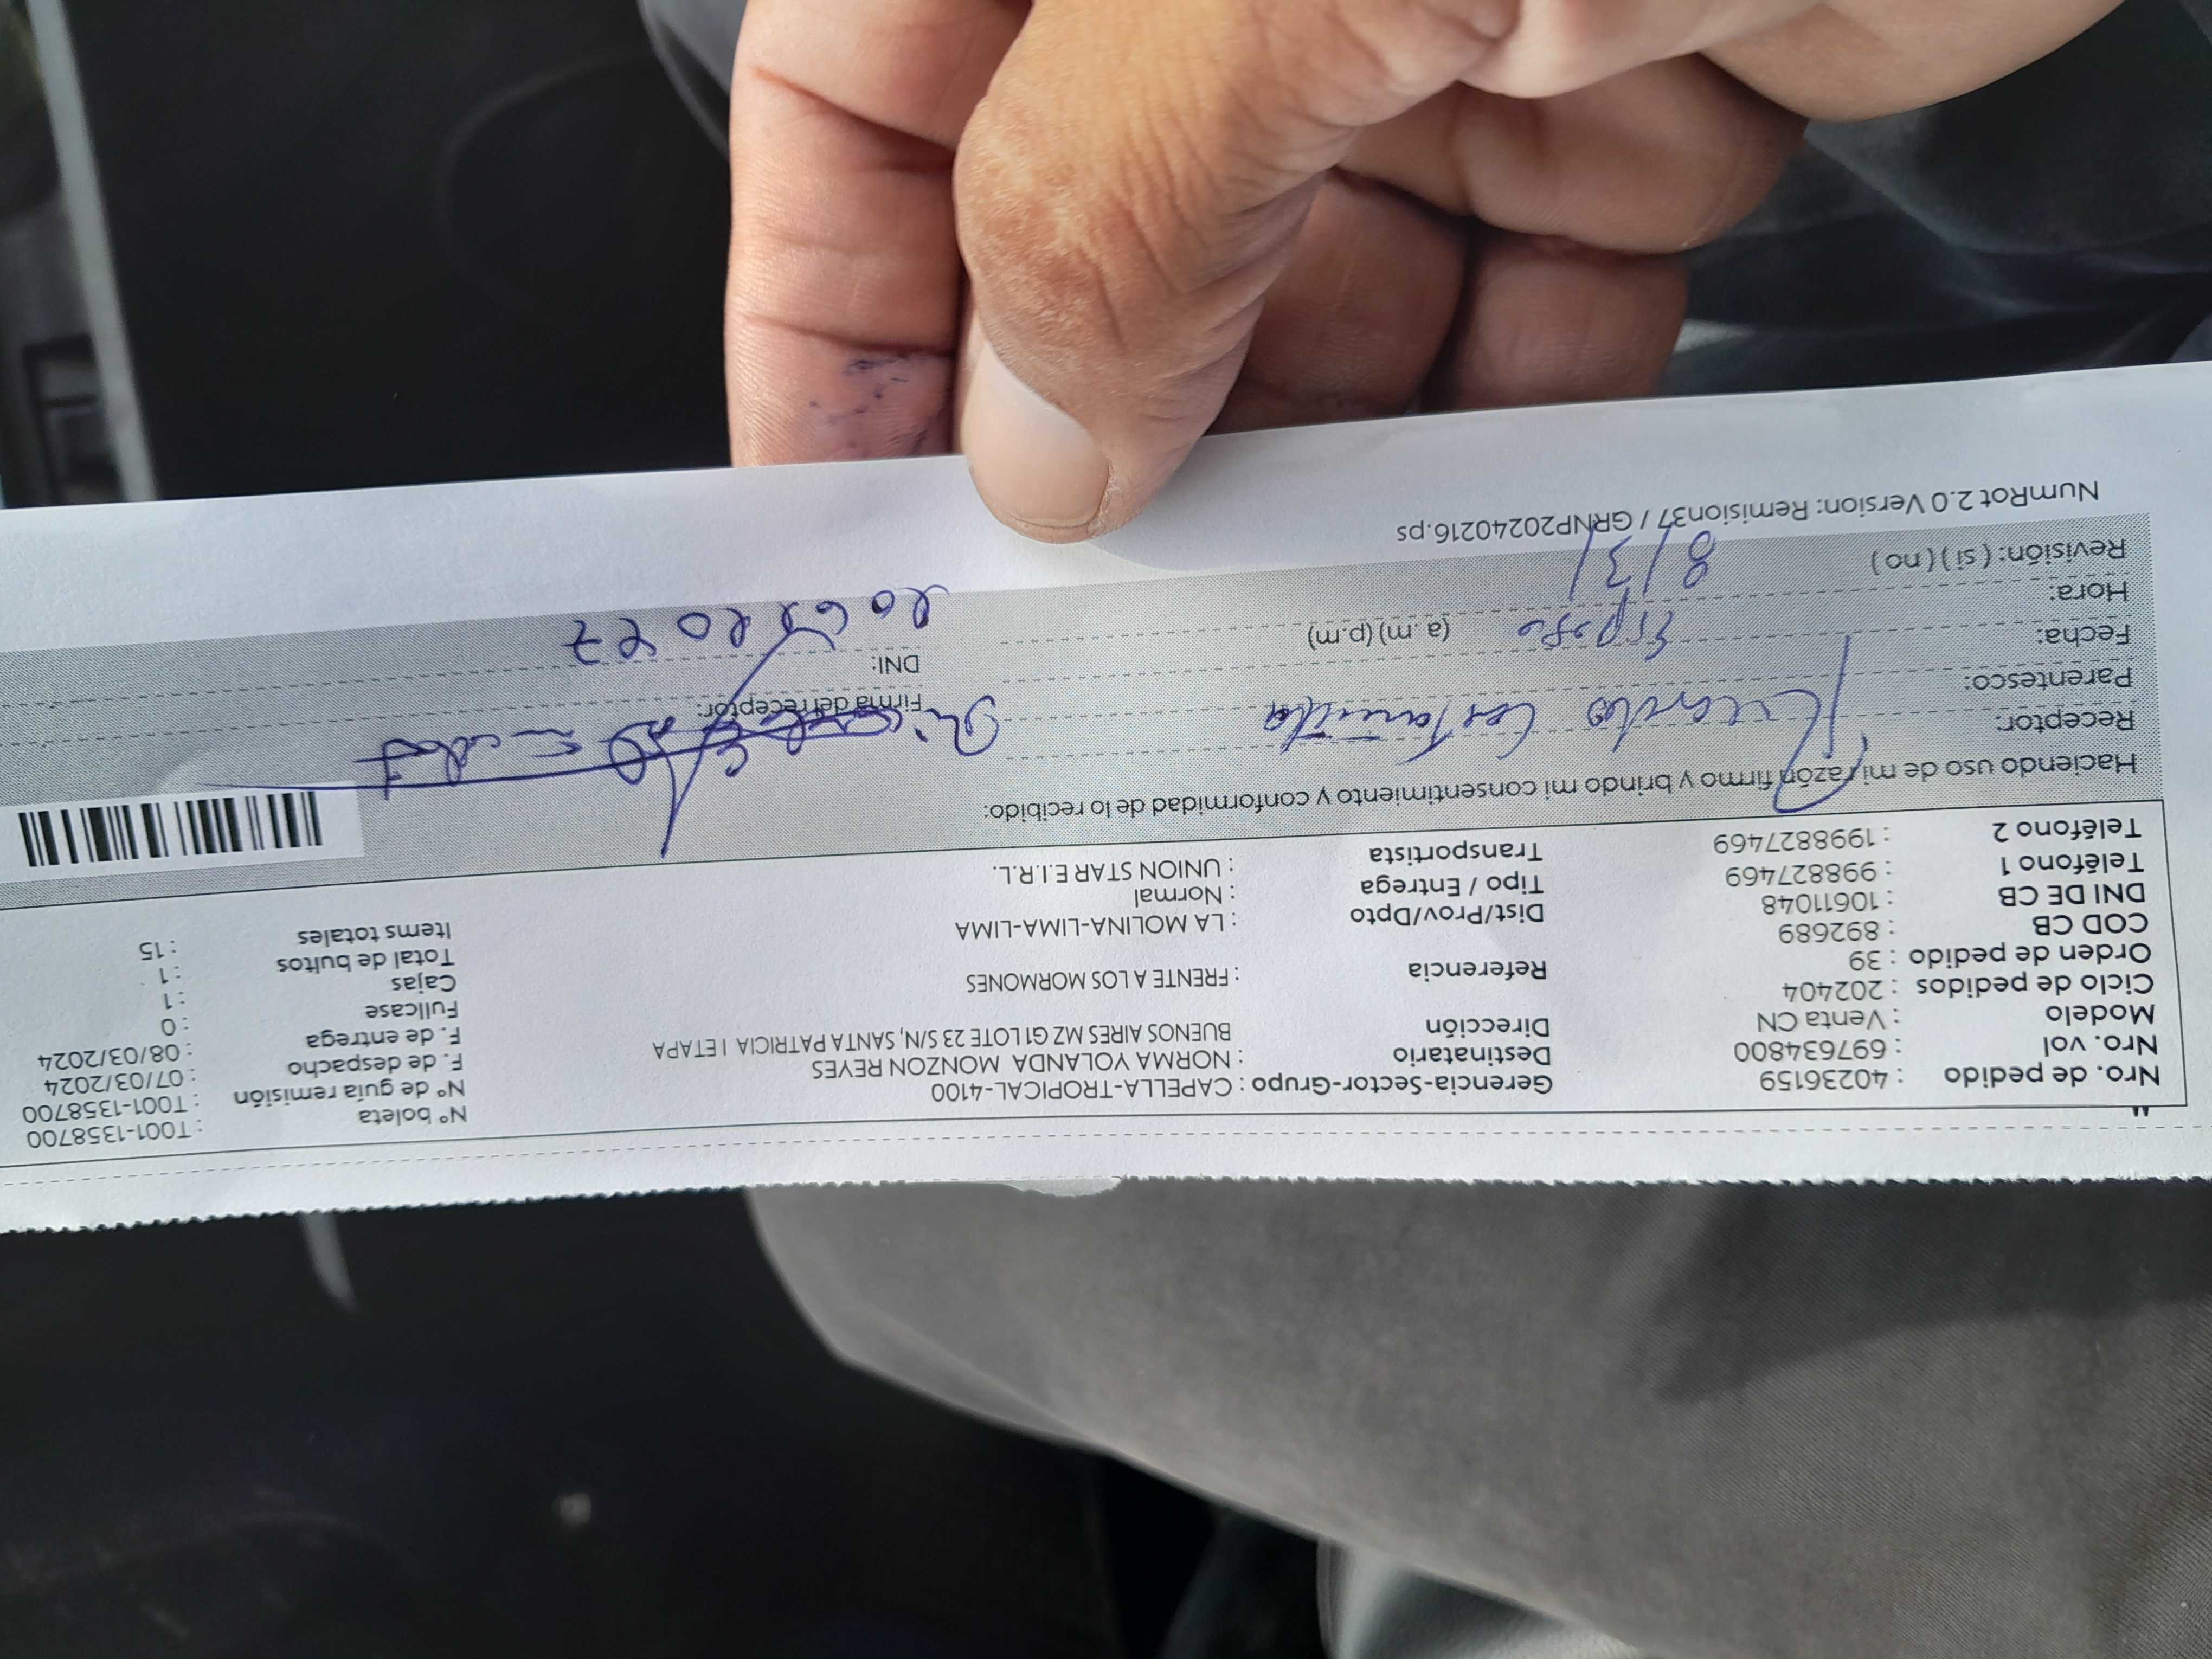 Nro. de pedido : 40236159
Nro. vol : 697634800
Modelo : Venta CN
Ciclo de pedidos : 202404
Orden de pedido : 39
COD CB : 892689
DNI DE CB : 10611048
Teléfono 1 : 998827469
Teléfono 2 : 1998827469
Gerencia-Sector-Grupo : CAPELLA-TROPICAL-4100
Destinatario : NORMA YOLANDA MONZON REYES
Dirección BUENOS AIRES MZ G1 LOTE 23 S/N, SANTA PATRICIA I ETAPA
Referencia : FRENTE A LOS MORMONES
Dist/Prov/Dpto : LA MOLINA-LIMA-LIMA
Tipo / Entrega : Normal
Transportista : UNION STAR E.I.R.L.
Nº boleta : T001-1358700
Nº de guía remisión : T001-1358700
F. de despacho : 07/03/2024
F. de entrega : 08/03/2024
Fullcase : 0
Cajas : 1
Total de bultos : 1
Items totales : 15
Haciendo uso de mi razón firmo y brindo mi consentimiento y conformidad de lo recibido:
Receptor: Ricardo
Parentesco: Esposo
Fecha: 8/3/
Hora: (a.m) (p.m)
Revisión: ( si ) ( no )
Firma del receptor:
DNI:
NumRot 2.0 Version: Remision37 / GRNP20240216.ps